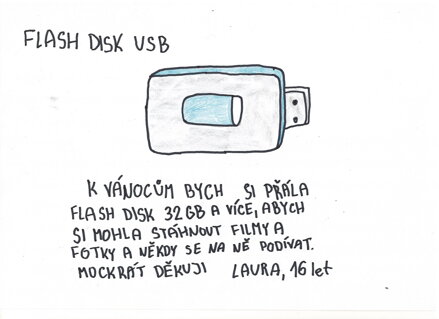 FLASH DISK USB
K VÁNOCŮM BYCH SI PŘÁLA
FLASH DISK 32GB A VÍCE, ABYCH
SI MOHLA STÁHNOUT FILMY A
FOTKY A NĚKDY SE NA NĚ PODÍVAT.
MOCKRÁT DĚKUJI LAURA, 16 let